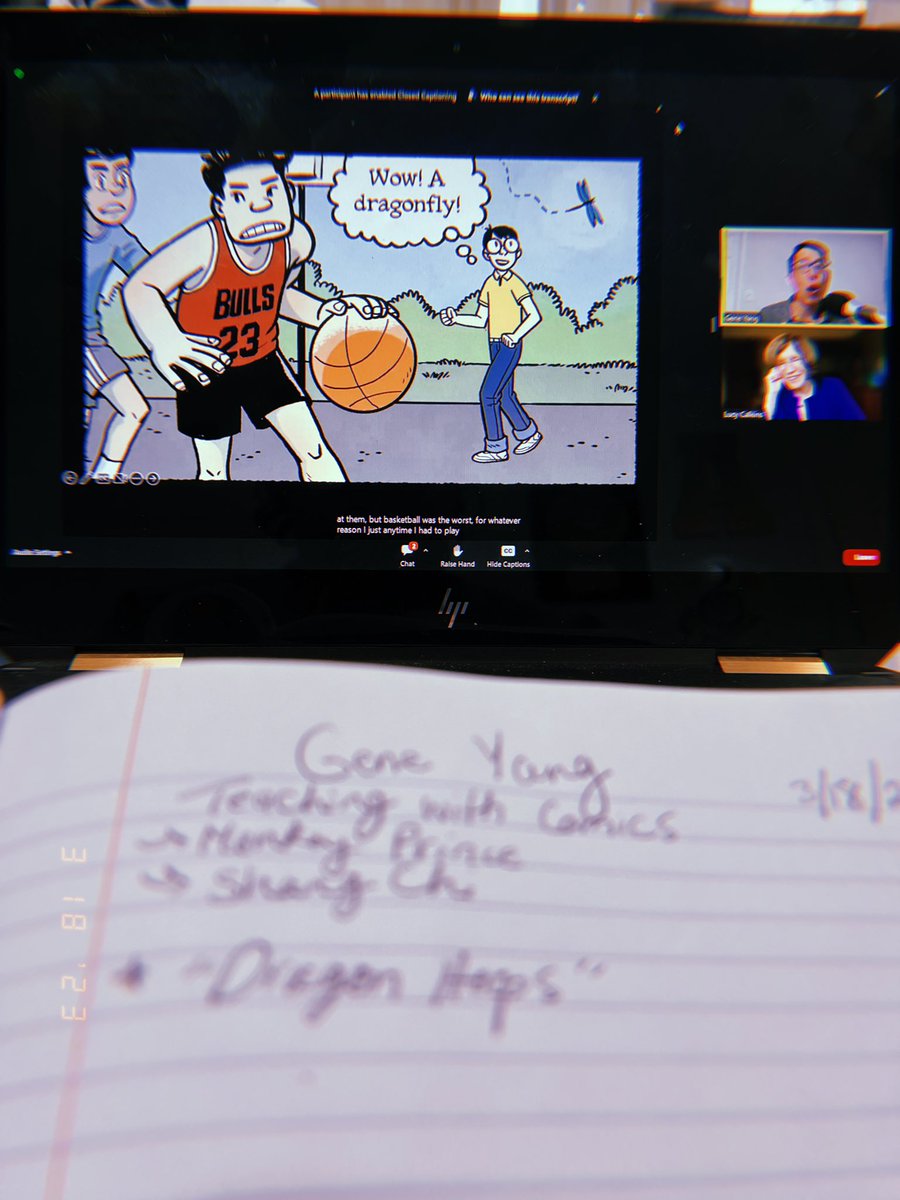 A participant has enabled Closed Captioning
Who can see this transcript?
Wow! A
dragonfly!
BULLS
23
Gene Yang
Lucy Calkins
at them, but basketball was the worst, for whatever
reason I just anytime I had to play
Audio Settings
2
Chat
Raise Hand
CC
Hide Captions
Leave
hp
Gene Yang
3/18/2
Teaching with Comics
→ Monkey Prince
→ Shang Chi
* "Dragon Hoops"
3 18 '23